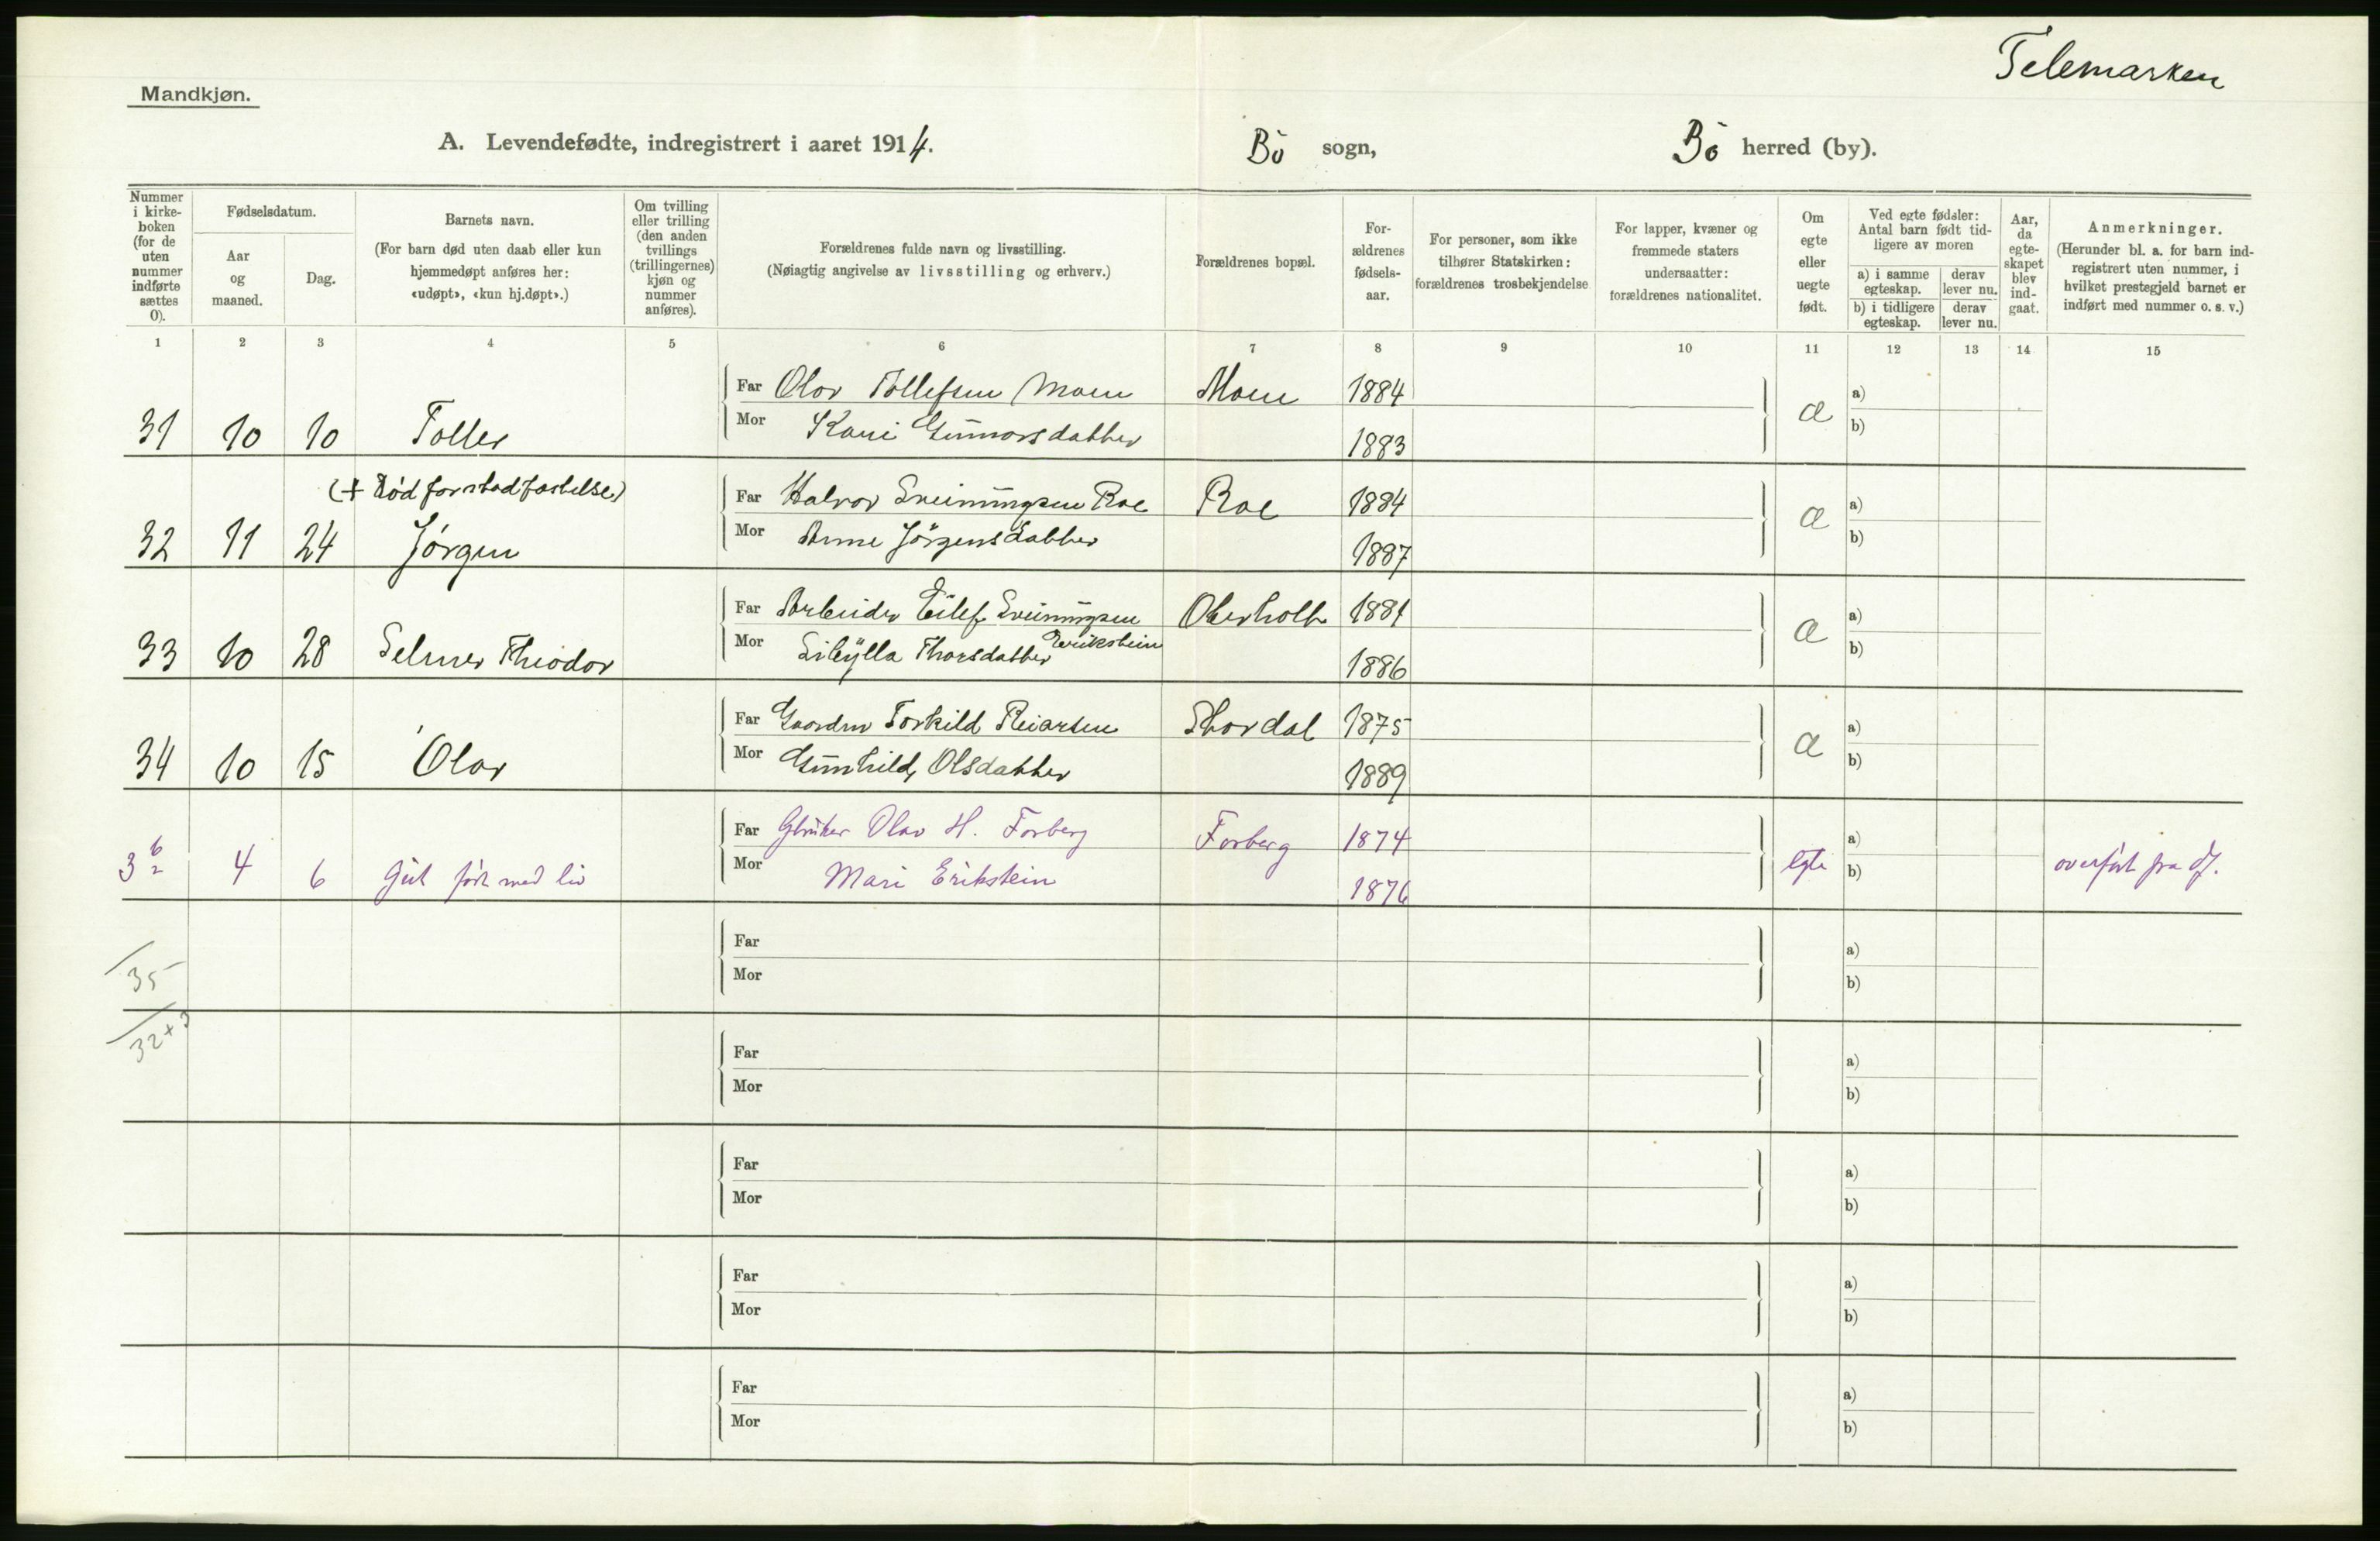 Telemarken
Mandkjøn.
A. Levendefødte, indregistrert i aaret 1914.
Bö sogn,
Bö herred (by).
Nummer i kirke-boken (for de uten nummer indførte sættes 0).
Fødselsdatum.
Aar og maaned.
Dag.
Barnets navn.
(For barn død uten daab eller kun
hjemmedøpt anføres her:
«udøpt», «kun hj.døpt».)
Om tvilling eller trilling (den anden tvillings (trillingernes) kjøn og nummer anføres).
Forældrenes fulde navn og livsstilling.
(Nøiagtig angivelse av livsstilling og erhverv.)
Forældrenes bopæl.
For-ældrenes fødsels-aar.
For personer, som ikke
tilhører Statskirken:
forældrenes trosbekjendelse
For lapper, kvæner og
fremmede staters
undersaatter:
forældrenes nationalitet.
Om egte eller uegte født.
Ved egte fødsler:
Antal barn født tid-
ligere av moren
a) i samme egteskap.
derav lever nu.
b) i tidligere egteskap.
derav lever nu.
Aar, da egte-skapet blev ind-gaat.
Anmerkninger.
(Herunder bl. a. for barn ind-
registrert uten nummer, i
hvilket prestegjeld barnet er
indført med nummer o. s. v.)
1 2 3 4 5 6 7 8 9 10 11 12 13 14 15
Far Olav Tollefsen Moen Moen 1884
31 10 10 Tollef Mor Kari Gunnarsdatter 1883 a a) b)
(+ död for stadfæstelse)
Far Halvor Sveinungsen Roe Roe 1884
32 11 24 Jörgen Mor Anne Jörgensdatter 1887 a a) b)
Far Arbeider Eilef Sveinungsen Oterholt 1881
33 10 28 Selmer Theodor Mor Sibylla Thorsdatter Erikstein 1886 a a) b)
Far Gaardm Torkild Reiarsen Stordal 1875
34 10 15 Olav Mor Gunhild Olsdatter 1889 a a) b)
Far Gbruker Olav H. Forberg Forberg 1874
4 6 Gut födt med liv Mor Mari Erikstein 1876 egte a) b) overfört fra df.
35
Far
Mor
a)
b)
32+3
Far
Mor
a)
b)
Far
Mor
a)
b)
Far
Mor
a)
b)
Far
Mor
a)
b)